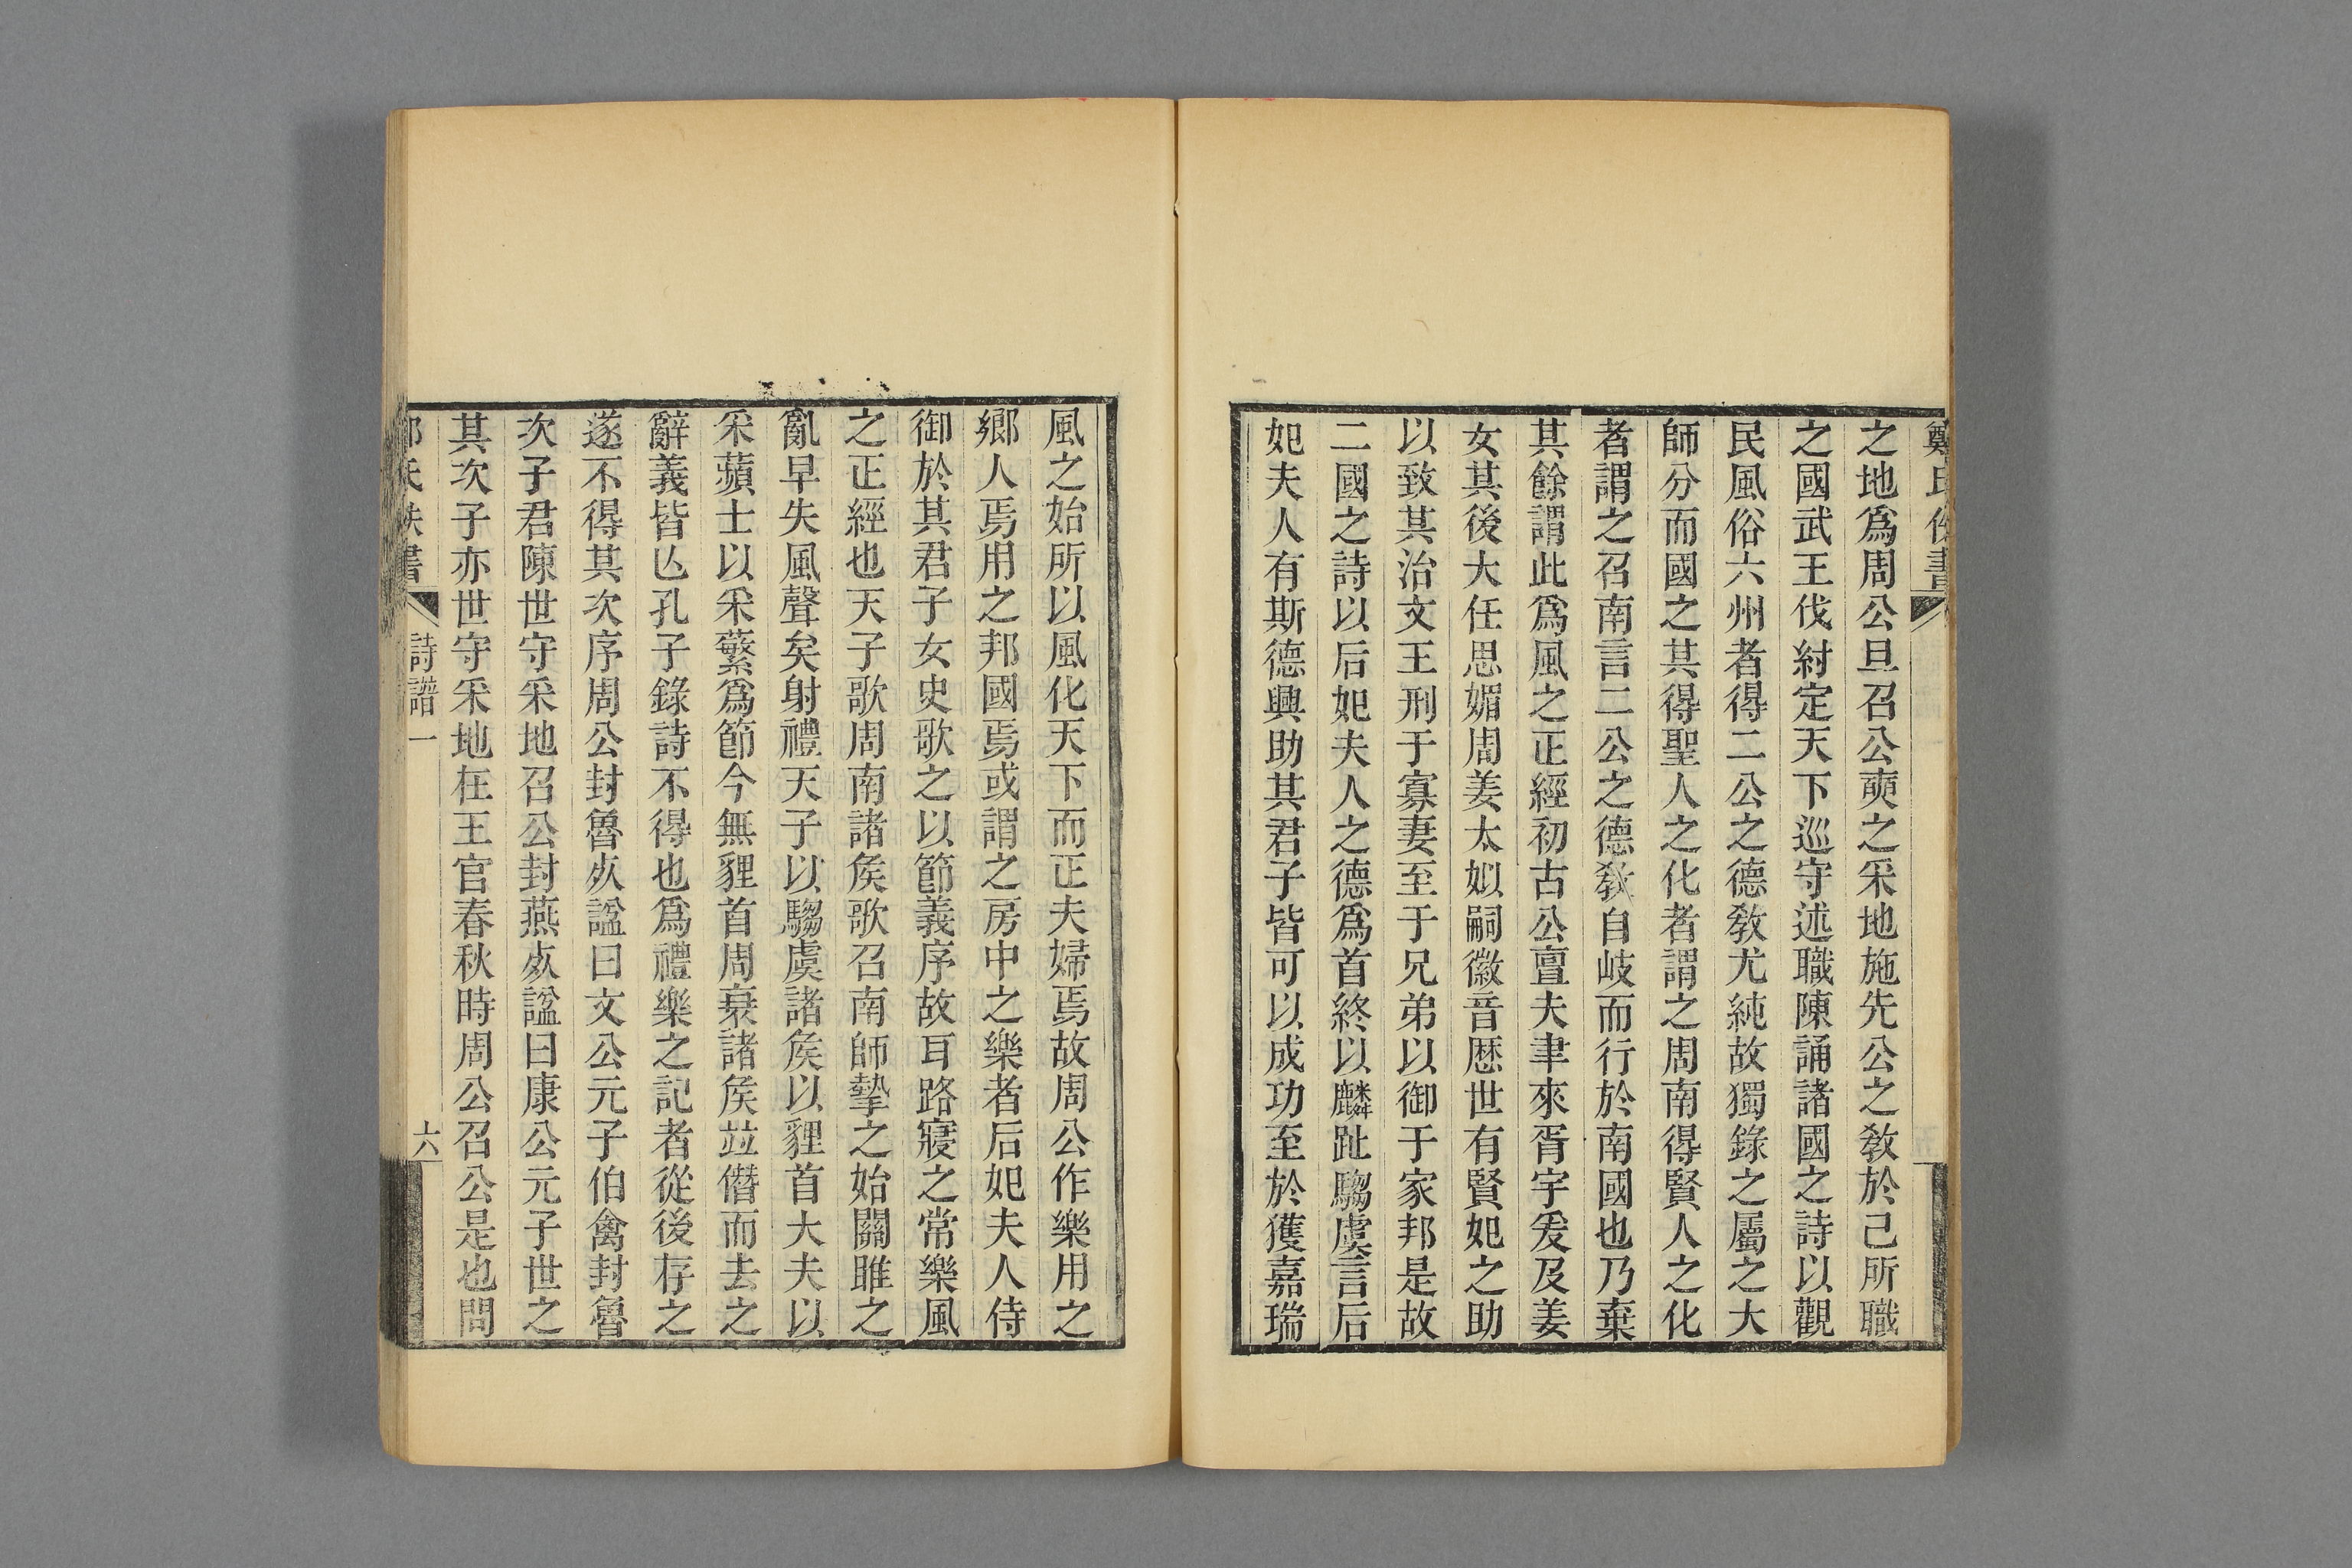 鄭氏佚書
之地爲周公旦召公奭之采地施先公之敎於己所職
之國武王伐紂定天下巡守述職陳誦諸國之詩以觀
民風俗六州者得二公之德敎尤純故獨錄之屬之大
師分而國之其得聖人之化者謂之周南得賢人之化
者謂之召南言二公之德敎自岐而行於南國也乃棄
其餘謂此爲風之正經初古公亶夫聿來胥宇爰及姜
女其後大任思媚周姜太姒嗣徽音歷世有賢妃之助
以致其治文王刑于寡妻至于兄弟以御于家邦是故
二國之詩以后妃夫人之德爲首終以麟趾騶虞言后
妃夫人有斯德興助其君子皆可以成功至於獲嘉瑞
風之始所以風化天下而正夫婦焉故周公作樂用之
鄉人焉用之邦國焉或謂之房中之樂者后妃夫人侍
御於其君子女史歌之以節義序故耳路寢之常樂風
之正經也天子歌周南諸矦歌召南師摯之始關雎之
亂早失風聲矣射禮天子以騶虞諸矦以貍首大夫以
采蘋士以采蘩爲節今無貍首周衰諸矦竝僭而去之
辭義皆亾孔子錄詩不得也爲禮樂之記者從後存之
遂不得其次序周公封魯㱙諡曰文公元子伯禽封魯
次子君陳世守采地召公封燕㱙諡曰康公元子世之
其次子亦世守采地在王官春秋時周公召公是也問
鄭氏佚書
詩譜一
六